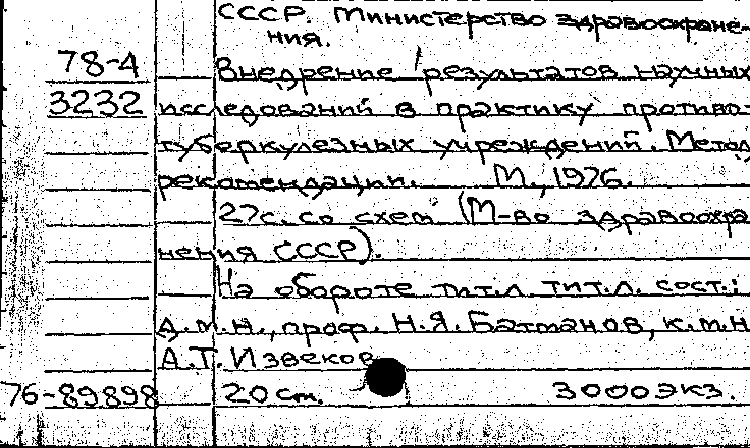 СССР. Министерство здравоохране-
ния.
78-4
Внедрение результатов научных
3232 исследований в практику противо-
туберкулезных учреждений. Метод.
рекомендации. М., 1976.
27с. со схем (М-во здравоохра
нения СССР).
На обороте тит.л. тит.л. сост.:
д.м.н., проф. Н.Я. Батманов, к.м.н
А.Т. Извеков
76-89898 20 см. 3000 экз.